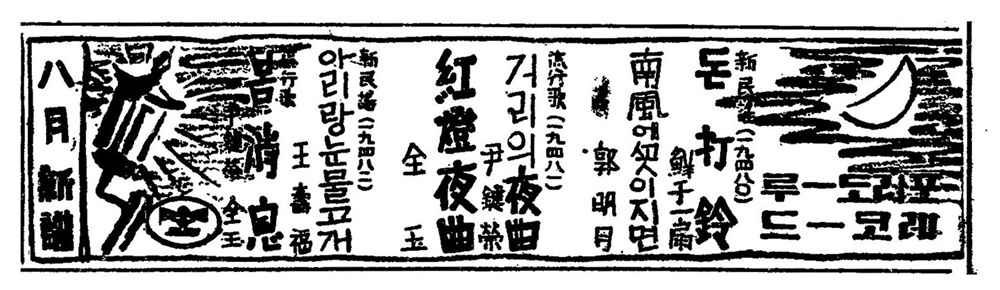 포리도ー루
레코ー드
新民謠(一九四八〇)
돈打鈴
鮮于一扇
南風에
郭明月
流行歌(一九四八一)
거리의夜曲
尹鍵榮
紅燈夜曲
全玉
新民謠(一九四八二)
아리랑눈물고개
王壽福
流行歌
消息
尹鍵榮 全玉
八月新譜